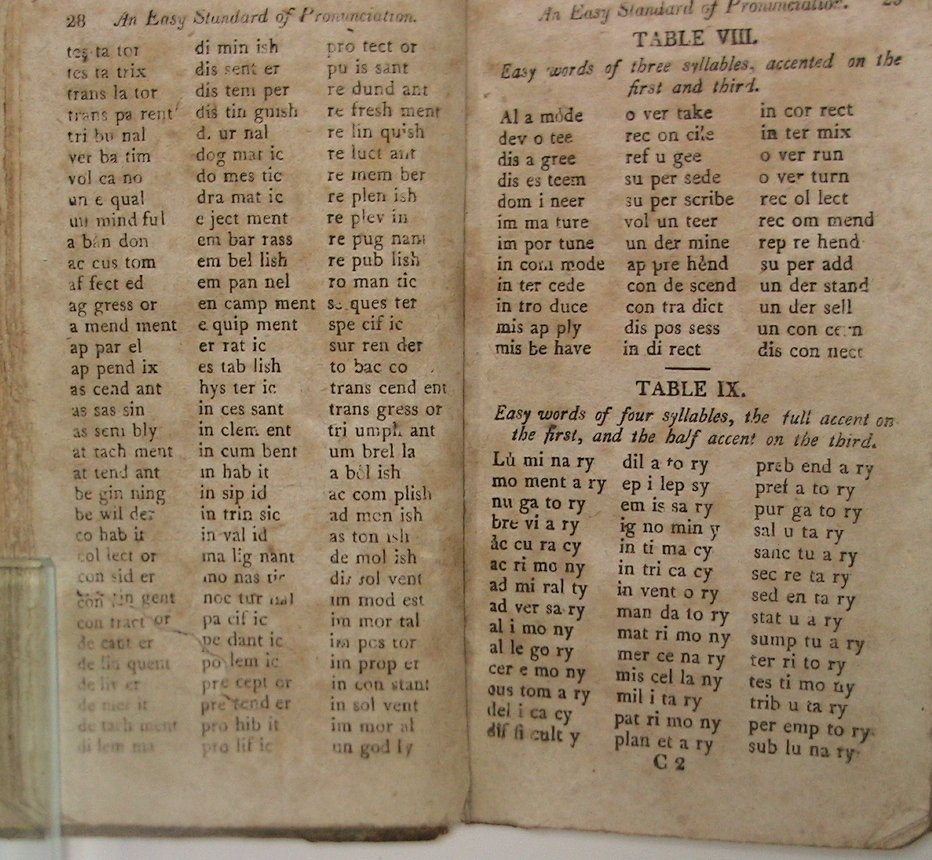 28 An Easy Standard of Pronunciation.
tes ta tor
tes ta trix
trans la tor
trans pa rent
tri bu nal
ver ba tim
vol ca no
un e qual
un mind ful
a ban don
ac cus tom
af fect ed
ag gress or
a mend ment
ap par el
ap pend ix
as cend ant
as sas sin
as sem bly
at tach ment
at tend ant
be gin ning
be wil der
co hab it
col lect or
con sid er
con tin gent
con tract or
de cant er
de lin quent
de liv er
de mer it
de tach ment
di lem ma
di min ish
dis sent er
dis tem per
dis tin guish
d. ur nal
dog mat ic
do mes tic
dra mat ic
e ject ment
em bar rass
em bel lish
em pan nel
en camp ment
e quip ment
er rat ic
es tab lish
hys ter ic
in ces sant
in clem ent
in cum bent
in hab it
in sip id
in trin sic
in val id
ma lig nant
mo nas tic
noc tur nal
pa cif ic
pe dant ic
po lem ic
pre cept or
pre tend er
pro hib it
pro lif ic
pro tect or
pu is sant
re dund ant
re fresh ment
re lin quish
re luct ant
re mem ber
re plen ish
re plev in
re pug nant
re pub lish
ro man tic
se ques ter
spe cif ic
sur ren der
to bac co
trans cend ent
trans gress or
tri umph ant
um brel la
a bŏl ish
ac com plish
ad mon ish
as ton ish
de mol ish
dis sol vent
im mod est
im mor tal
im pos tor
im prop er
in con stant
in sol vent
im mor al
un god ly
An Easy Standard of Pronunciation.
TABLE VIII.
Easy words of three syllables, accented on the
first and third.
Al a mode
dev o tee
dis a gree
dis es teem
dom i neer
im ma ture
im por tune
in com mode
in ter cede
in tro duce
mis ap ply
mis be have
o ver take
rec on cile
ref u gee
su per sede
su per scribe
vol un teer
un der mine
ap pre hĕnd
con de scend
con tra dict
dis pos sess
in di rect
in cor rect
in ter mix
o ver run
o ver turn
rec ol lect
rec om mend
rep re hend
su per add
un der stand
un der sell
un con cern
dis con nect
TABLE IX.
Easy words of four syllables, the full accent on
the first, and the half accent on the third.
Lù mi na ry
mo ment a ry
nu ga to ry
bre vi a ry
ăc cu ra cy
ac ri mo ny
ad mi ral ty
ad ver sa ry
al i mo ny
al le go ry
cer e mo ny
cus tom a ry
del i ca cy
dif fi cult y
dil a to ry
ep i lep sy
em is sa ry
ig no min y
in ti ma cy
in tri ca cy
in vent o ry
man da to ry
mat ri mo ny
mer ce na ry
mis cel la ny
mil i ta ry
pat ri mo ny
plan et a ry
preb end a ry
pref a to ry
pur ga to ry
sal u ta ry
sanc tu a ry
sec re ta ry
sed en ta ry
stat u a ry
sump tu a ry
ter ri to ry
tes ti mo ny
trib u ta ry
per emp to ry
sub lu na ry
C 2